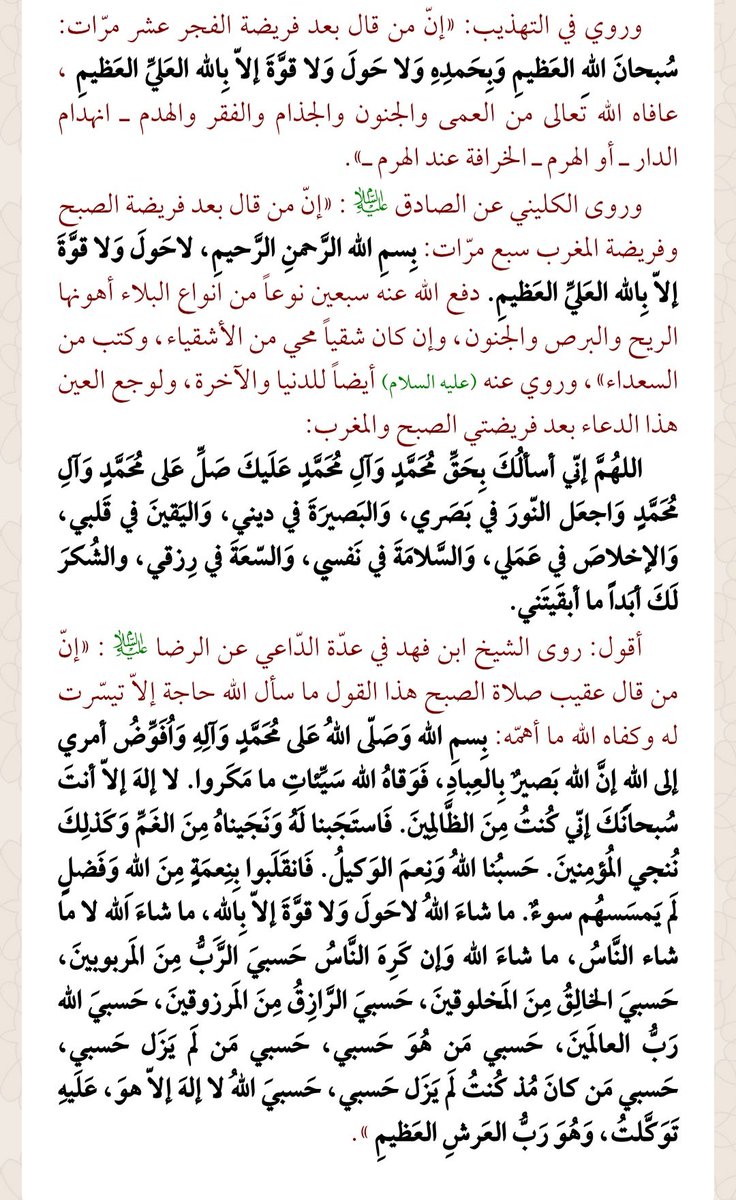 وروي في التهذيب: «إنّ من قال بعد فريضة الفجر عشر مرّات:
سُبحانَ اللهِ العَظيمِ وَبِحَمدِهِ وَلا حَولَ وَلا قوَّةَ إلاّ بِالله العَليِّ العَظيمِ ،
عافاه الله تعالى من العمى والجنون والجذام والفقر والهدم ــ انهدام
الدار ــ أو الهرم ــ الخرافة عند الهرم ــ».
وروى الكليني عن الصادق عليه السلام : «إنّ من قال بعد فريضة الصبح
وفريضة المغرب سبع مرّات: بِسمِ الله الرَّحمنِ الرَّحيمِ، لاحَولَ وَلا قوَّةَ
إلاّ بِالله العَليِّ العَظيمِ. دفع الله عنه سبعين نوعاً من أنواع البلاء أهونها
الريح والبرص والجنون، وإن كان شقياً محي من الأشقياء، وكتب من
السعداء»، وروي عنه (عليه السلام) أيضاً للدنيا والآخرة، ولوجع العين
هذا الدعاء بعد فريضتي الصبح والمغرب:
اللهُمَّ إنّي أسألُكَ بِحَقِّ مُحَمَّدٍ وَآلِ مُحَمَّدٍ عَلَيكَ صَلِّ عَلى مُحَمَّدٍ وَآلِ
مُحَمَّدٍ وَاجعَل النّورَ في بَصَري، وَالبَصيرَةَ في ديني، وَاليَقينَ في قَلبي،
وَالإخلاصَ في عَمَلي، وَالسَّلامَةَ في نَفسي، وَالسّعَةَ في رِزقي، والشُكرَ
لَكَ أبَداً ما أبقَيتَني.
أقول: روى الشيخ ابن فهد في عدّة الدّاعي عن الرضا عليه السلام : «إنّ
من قال عقيب صلاة الصبح هذا القول ما سأل الله حاجة إلاّ تيسّرت
له وكفاه الله ما أهمّه: بِسمِ الله وَصَلّى اللهُ عَلى مُحَمَّدٍ وَآلِهِ وَاُفَوِّضُ أمري
إلى الله إنَّ الله بَصيرٌ بِالعِبادِ، فَوَقاهُ الله سَيِّئاتِ ما مَكَروا. لا إلهَ إلاّ أنتَ
سُبحانَكَ إنّي كُنتُ مِنَ الظَّالِمينَ. فَاستَجَبنا لَهُ وَنَجَيناهُ مِنَ الغَمِّ وَكَذلِكَ
نُنجي المُؤمِنينَ. حَسبُنا اللهُ وَنِعمَ الوَكيلُ. فَانقَلَبوا بِنِعمَةٍ مِنَ الله وَفَضلٍ
لَم يَمسَسهُم سوءٌ. ما شاءَ اللهُ لاحَولَ وَلا قوَّةَ إلاّ بِالله، ما شاءَ الله لا ما
شاء النَّاسُ، ما شاءَ الله وَإن كَرِهَ النَّاسُ حَسبيَ الرَّبُّ مِنَ المَربوبينَ،
حَسبيَ الخالِقُ مِنَ المَخلوقينَ، حَسبيَ الرَّازِقُ مِنَ المَرزوقينَ، حَسبيَ الله
رَبُّ العالَمينَ، حَسبي مَن هُوَ حَسبي، حَسبي مَن لَم يَزَل حَسبي،
حَسبي مَن كانَ مُذ كُنتُ لَم يَزَل حَسبي، حَسبيَ اللهُ لا إلهَ إلاّ هوَ، عَلَيهِ
تَوَكَّلتُ، وَهُوَ رَبُّ العَرشِ العَظيمِ ».